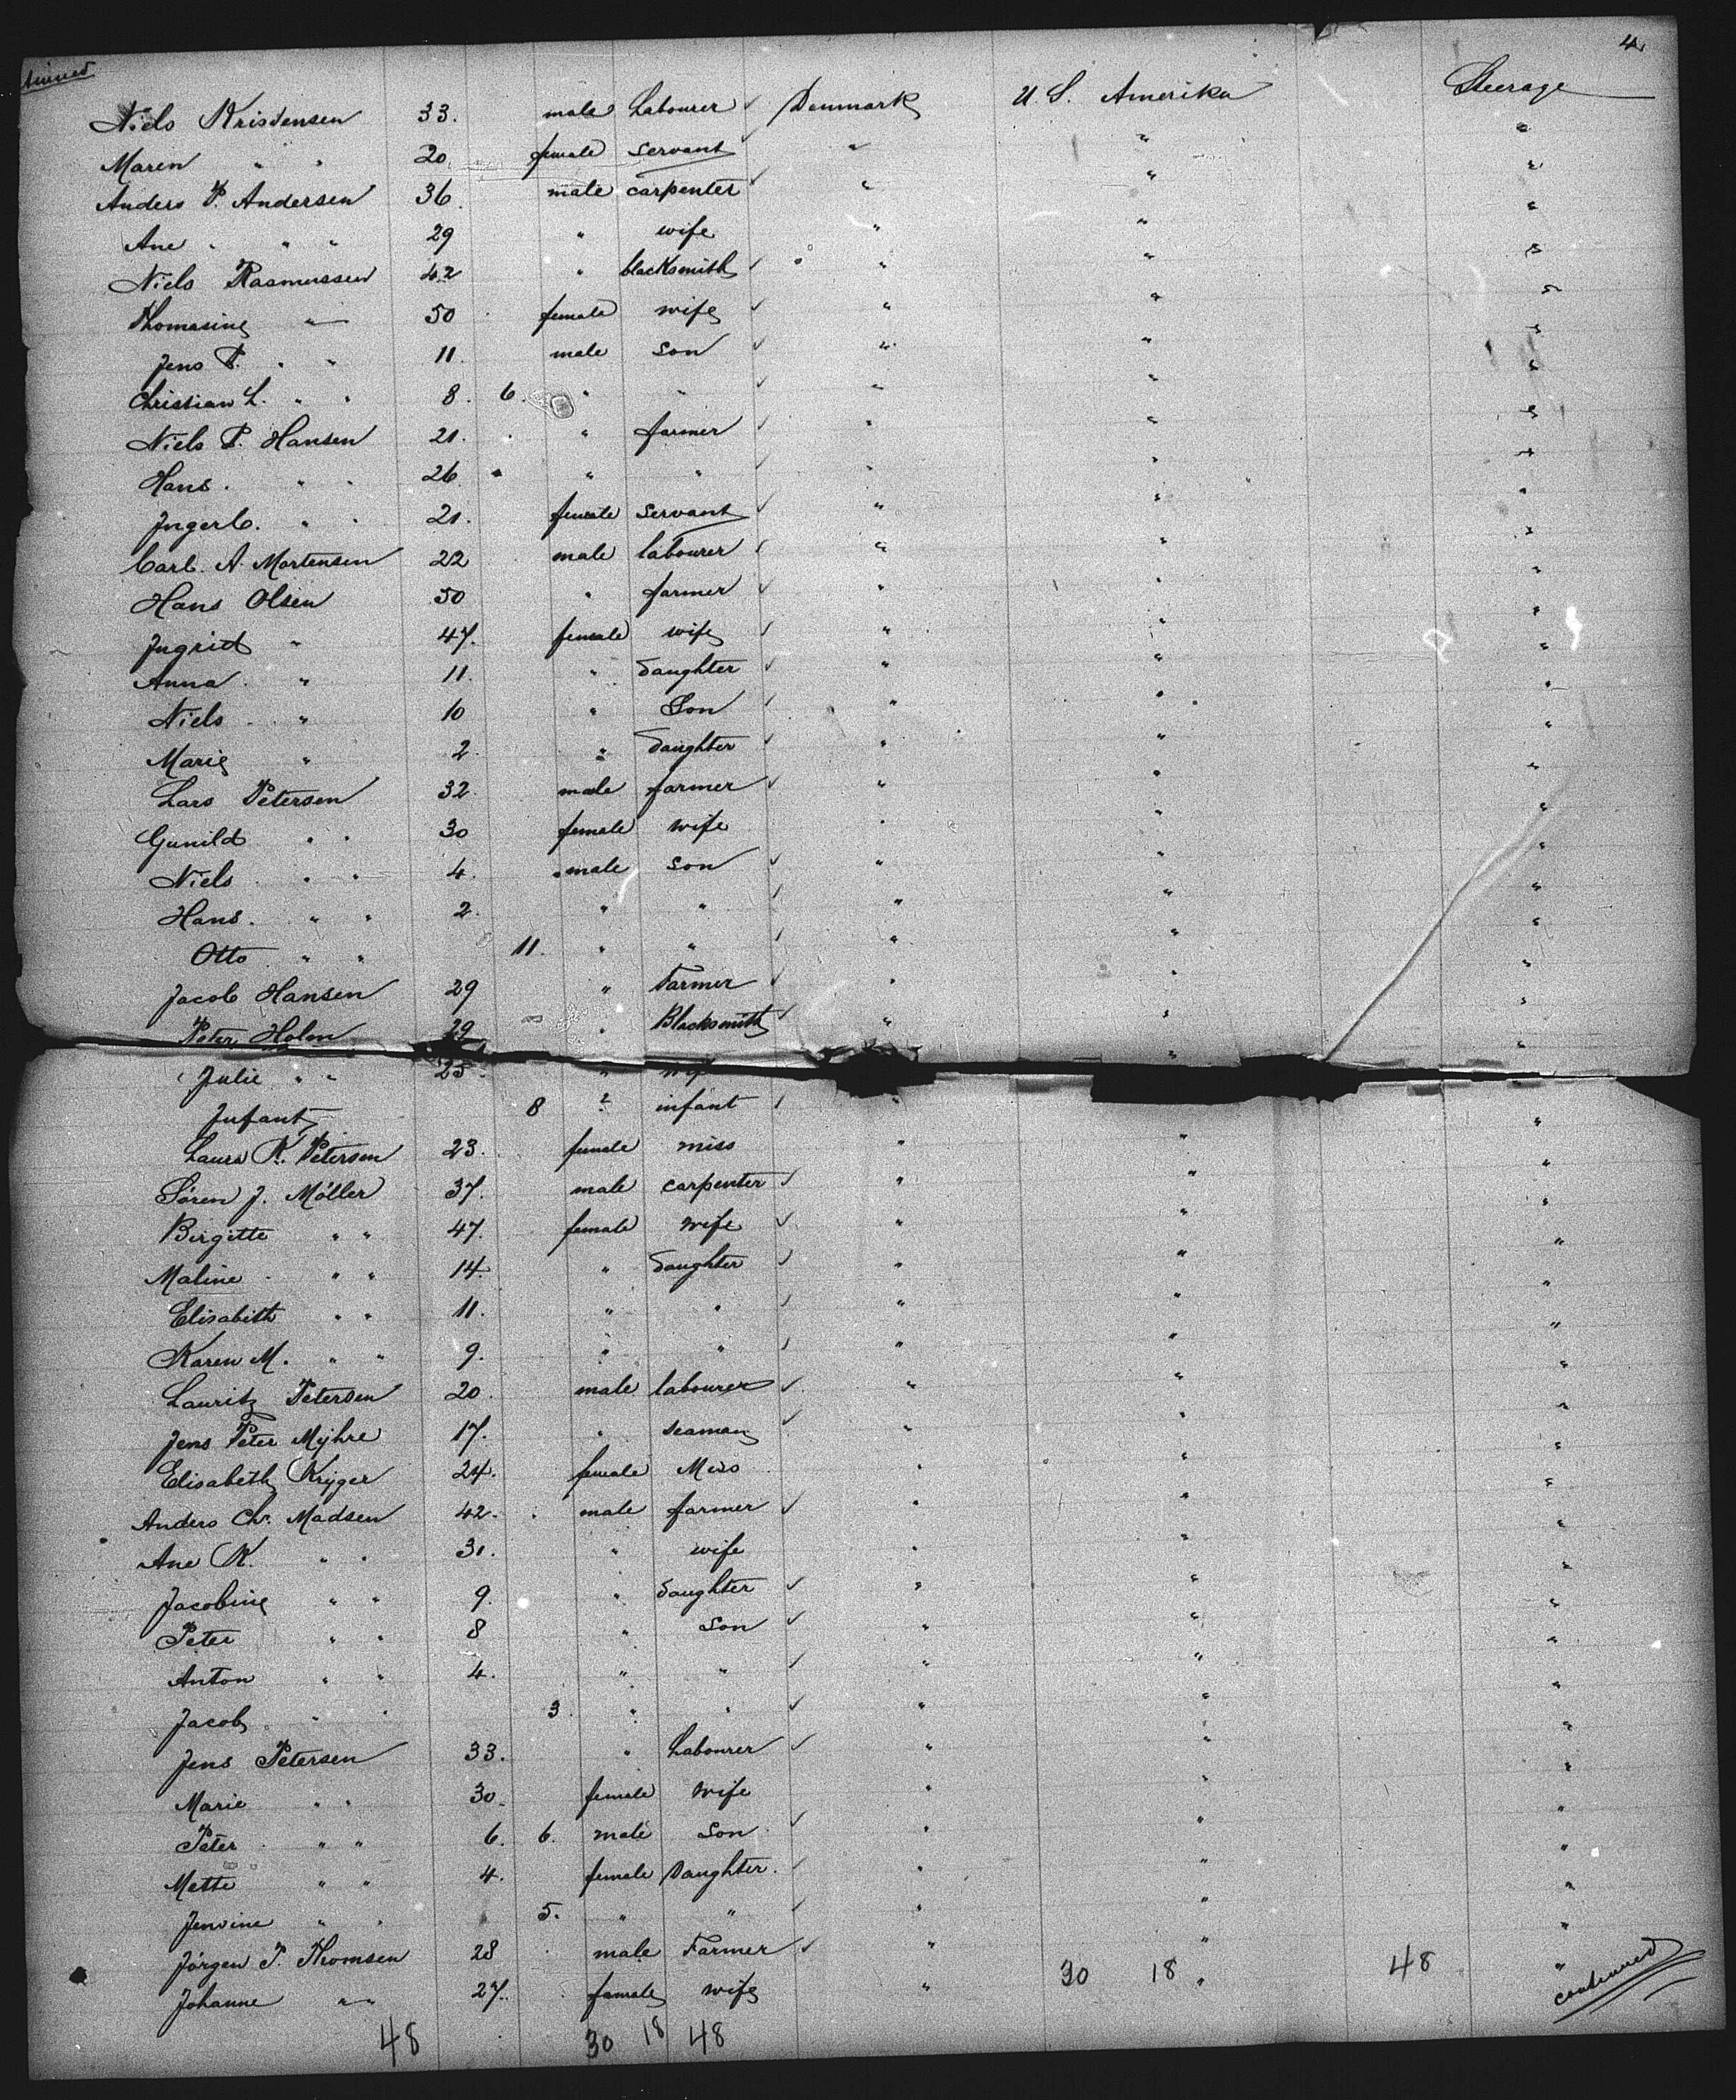 4
Niels Kristensen 33. male Labourer ✓ Danmark U. S. Amerika Steerage
Maren " " 20 female servant ✓ " " "
Anders P. Andersen 36. male carpenter ✓ " " "
Ane " " " 29 " wife " " "
Niels Rasmussen 42 " blacksmith ✓ " " "
Thomasine " 50 female wife ✓ " " "
Jens P. " " 11. male son ✓ " " "
Christian L. " " 8. 6. " " ✓ " " "
Niels P. Hansen 21. " farmer ✓ " " "
Hans. " " 26 " " ✓ " " "
Inger C. " " 21. female servant ✓ " " "
Carl. A. Mortensen 22 male labourer ✓ " " "
Hans Olsen 50 " farmer ✓ " " "
Ingrid " 47. female wife ✓ " " "
Anna " 11. " daughter ✓ " " "
Niels " 10 " Son ✓ " " "
Marie " 2. " daughter ✓ " " "
Lars Petersen 32. male farmer ✓ " " "
Gunild " " 30 female wife " " "
Niels " " 4. male son ✓ " " "
Hans. " " 2. " " ✓ " " "
Otto " " 11. " " ✓ " " "
Jacob Hansen 29 " Farmer ✓ " " "
Peter Holm 29 " Blacksmith ✓ " " "
Julie " " 25. " wife " "
Infant 8 " infant ✓ " "
Laura K. Petersen 23. female miss " " "
Sören J. Möller 37. male carpenter ✓ " " "
Birgitte " " 47. female wife ✓ " " "
Maline " " 14. " daughter ✓ " " "
Elisabeth " " 11. " " ✓ " " "
Karen M. " " 9. " " ✓ " " "
Lauritz Petersen 20. male labourer ✓ " " "
Jens Peter Myhre 17. " seaman ✓ " " "
Elisabeth Kryger 24. female Miss " " "
Anders Chr. Madsen 42. male farmer ✓ " " "
Ane K. " " 31. " wife " " "
Jacobine " " 9. " daughter ✓ " " "
Peter " " 8 " Son ✓ " " "
Anton " " 4. " " ✓ " " "
Jacob " " 3. " " ✓ " " "
Jens Petersen 33. " Labourer ✓ " " "
Marie " " 30. female wife " " "
Peter " " 6. 6. male Son ✓ " " "
Mette " " 4. female Daughter. ✓ " " "
Jensine " " 5. " " ✓ " " "
Jörgen P. Thomsen 28 male Farmer ✓ " " "
Johanne " " 27. female wife " 30 18 " 48 continued
48 30 18 48